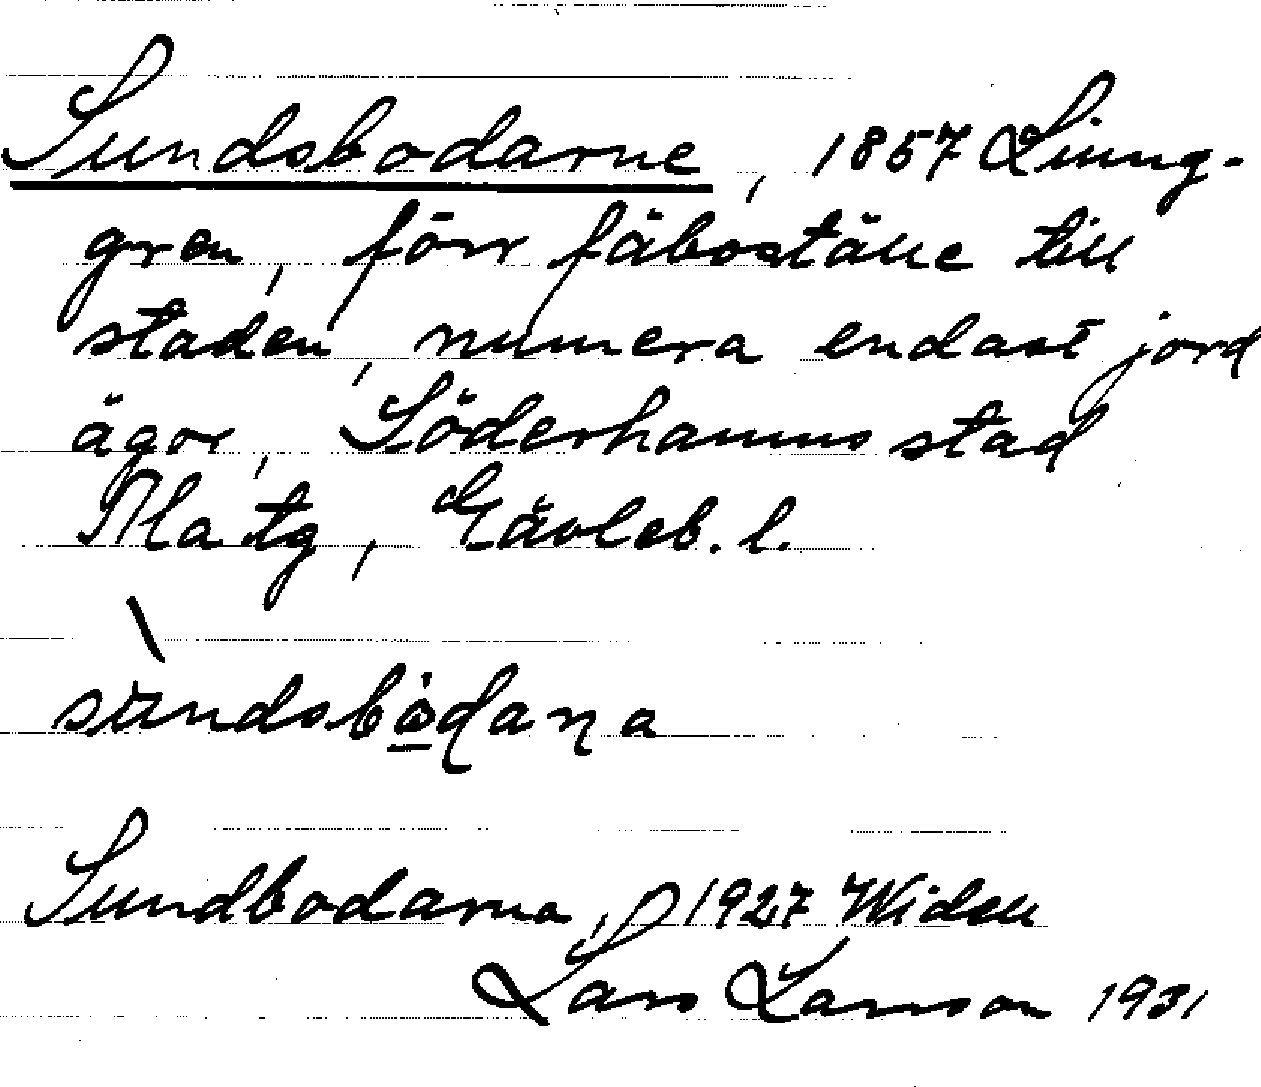 Sundsbodarne, 1857 Ljung-
gren, förr fäboställe till
staden, numera endast jord
ägor, Söderhamns stad
Ma tg, Gävleb. l.
sùndsbo̱dana
Sundbodarna, 1927 Widell
Lars Larsson 1931